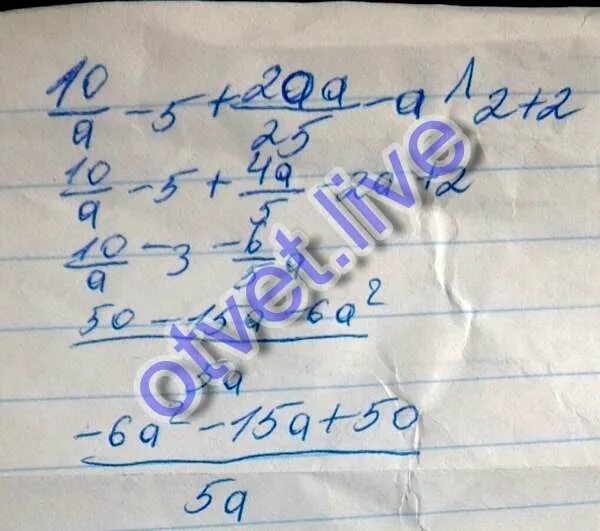 10/a - 5 + 20a/25 - a^2+2
10/a - 5 + 4a/5 - 2a + 2
10/a - 3 - 6/5 a
50 - 15a - 6a²
5a
-6a² - 15a + 50
5a
otvet.live